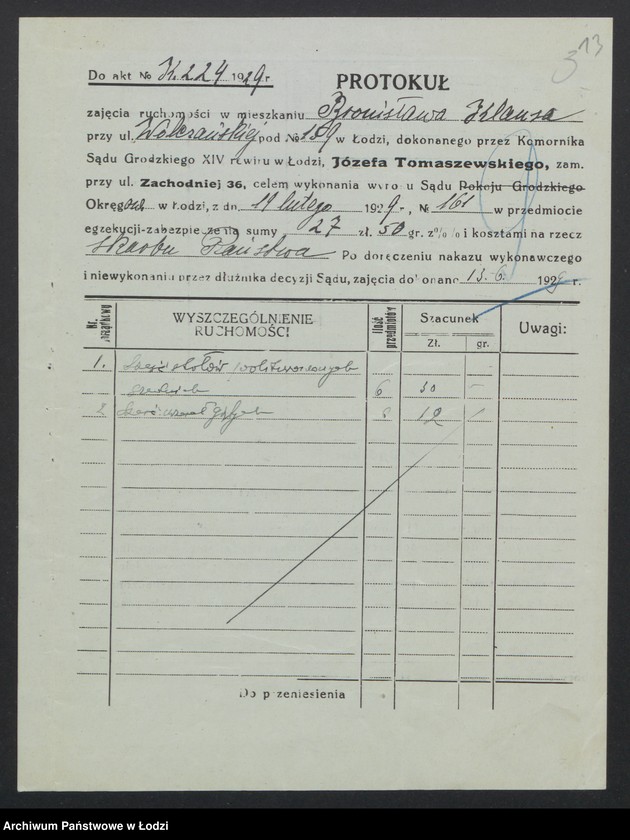 313
Do akt № K. 224 1929 r.
PROTOKUŁ
zajęcia ruchomości w mieszkaniu Bronisława
przy ul. Wólczańskiej pod № 159 w Łodzi, dokonanego przez Komornika
Sądu Grodzkiego XIV rewiru w Łodzi, Józefa Tomaszewskiego, zam.
przy ul. Zachodniej 36, celem wykonania wyroku Sądu Pokoju Grodzkiego
Okręgow w Łodzi, z dn. 19 lutego 1929 r., № 161 w przedmiocie
egzekucji-zabezpieczenia sumy 27 zł. 50 gr. z %% i kosztami na rzecz
Skarbu Państwa Po doręczeniu nakazu wykonawczego
i niewykonaniu przez dłużnika decyzji Sądu, zajęcia dokonano 13. 6. 1929 r.
Nr. porządkowy
WYSZCZEGÓLNIENIE RUCHOMOŚCI
Ilość przedmiotów
Szacunek
Zł. gr.
Uwagi:
1. sześć stołów
6 30 —
2
12
Do przeniesienia
Archiwum Państwowe w Łodzi